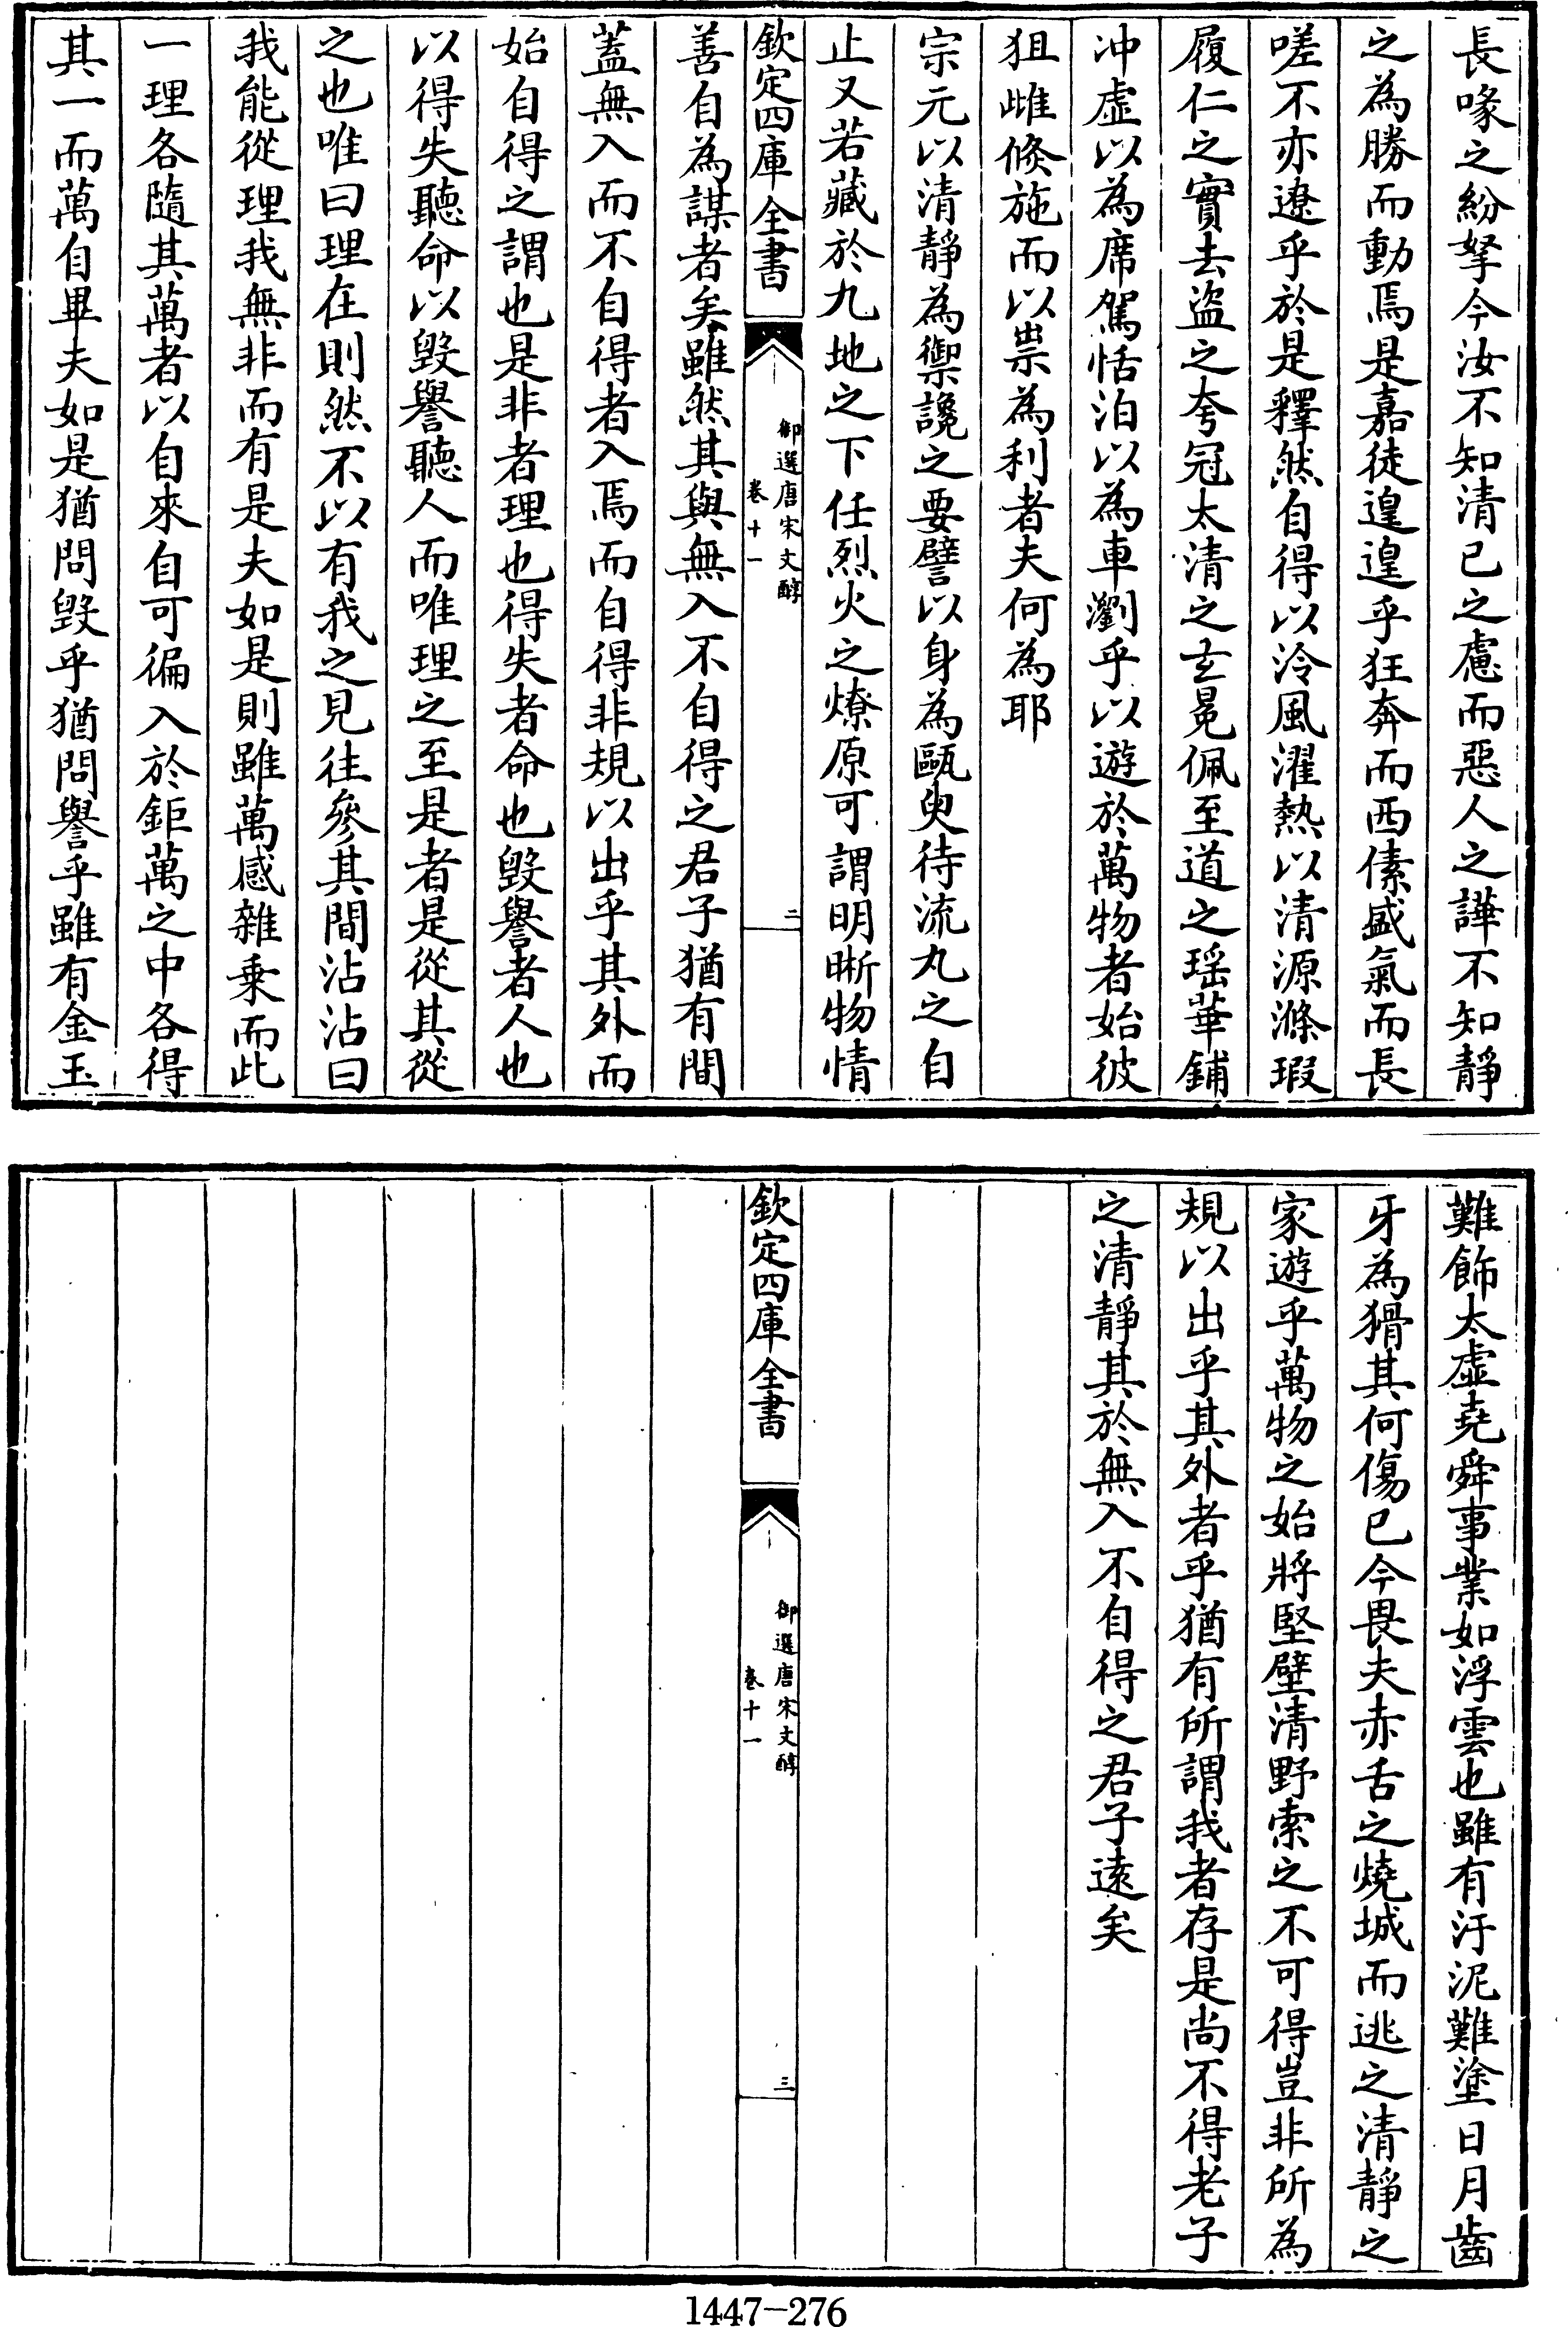 長喙之紛拏今汝不知清已之慮而惡人之譁不知靜
之為勝而動焉是嘉徒遑遑乎狂奔而西傃盛氣而長
嗟不亦遼乎於是釋然自得以泠風濯熱以清源滌瑕
履仁之實去盜之夸冠太清之玄冕佩至道之瑤華鋪
冲虛以為席駕恬泊以為車瀏乎以遊於萬物者始彼
狙雌倏施而以祟為利者夫何為耶
宗元以清靜為禦讒之要譬以身為甌臾待流丸之自
止又若藏於九地之下任烈火之燎原可謂明晰物情
欽定四庫全書
御選唐宋文醇
卷十一
二
善自為謀者矣雖然其與無入不自得之君子猶有間
蓋無入而不自得者入焉而自得非規以出乎其外而
始自得之謂也是非者理也得失者命也毀譽者人也
以得失聽命以毀譽聽人而唯理之至是者是從其從
之也唯曰理在則然不以有我之見往參其間沾沾曰
我能從理我無非而有是夫如是則雖萬感雜乗而此
一理各隨其萬者以自來自可徧入於鉅萬之中各得
其一而萬自畢夫如是猶問毀乎猶問譽乎雖有金玉
難飾太虛堯舜事業如浮雲也雖有汙泥難塗日月齒
牙為猾其何傷已今畏夫赤舌之燒城而逃之清靜之
家遊乎萬物之始將堅壁清野索之不可得豈非所為
規以出乎其外者乎猶有所謂我者存是尚不得老子
之清靜其於無入不自得之君子遠矣
欽定四庫全書
御選唐宋文醇
卷十一
三
1447-276